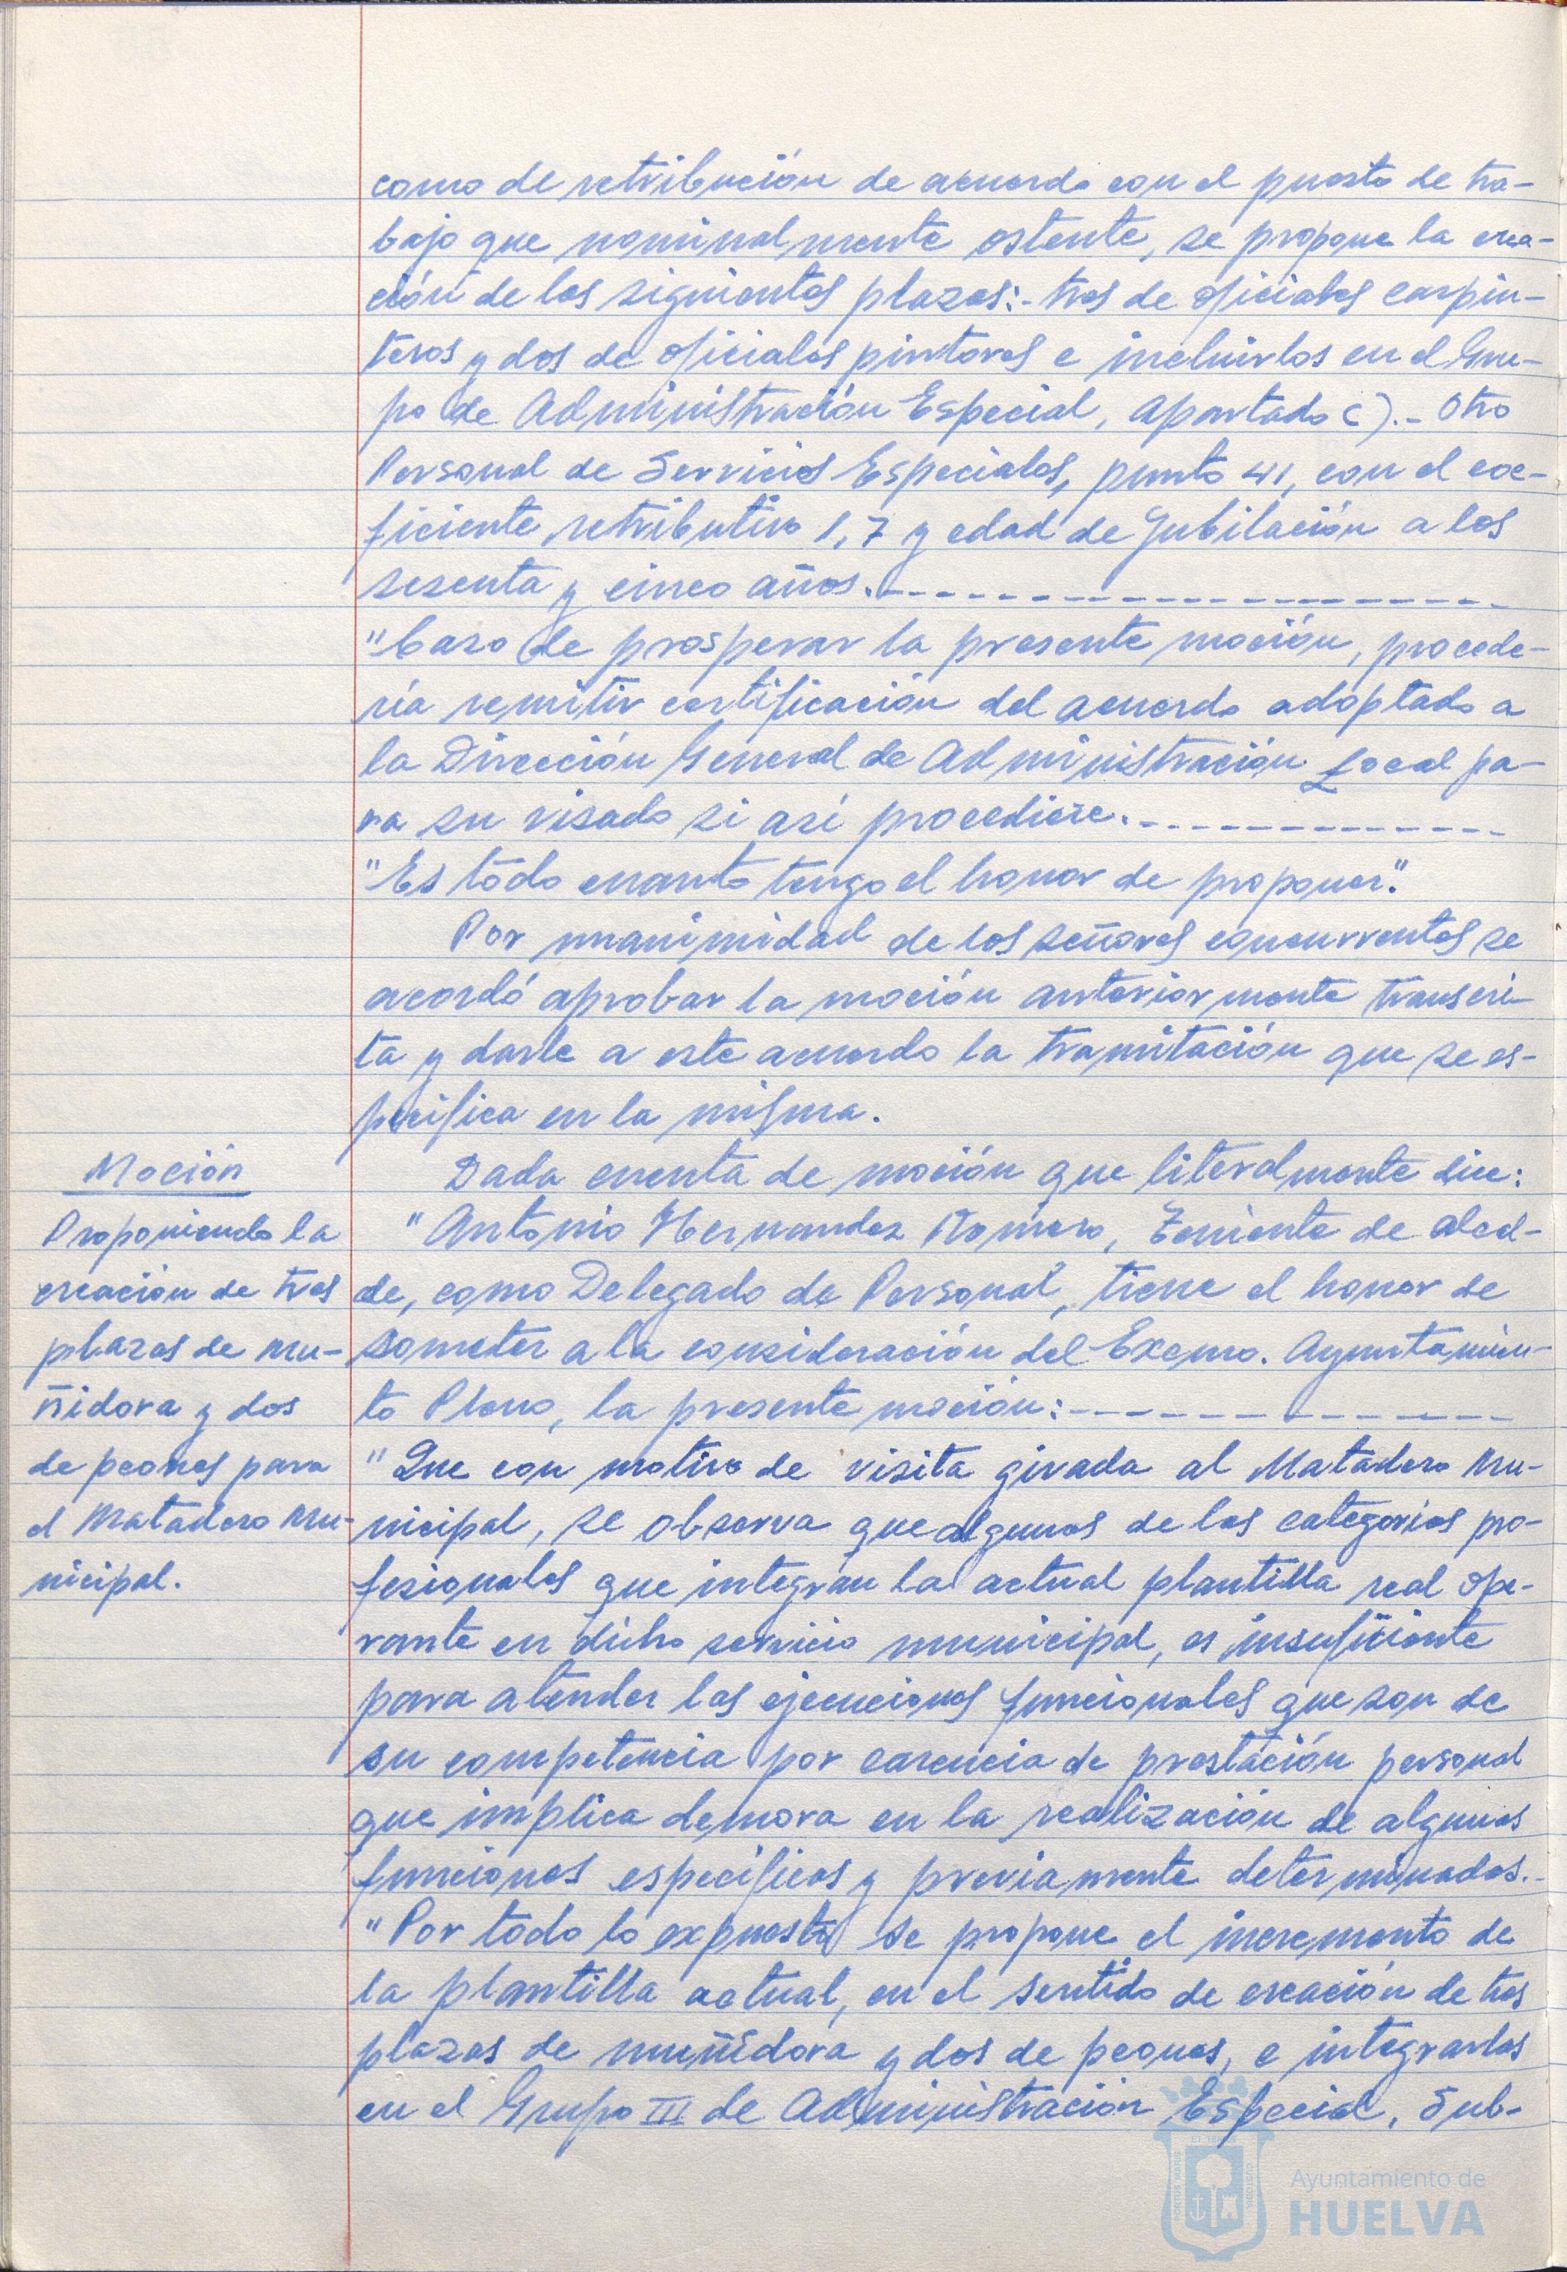 como de retribución de acuerdo con el puesto de tra-
bajo que nominalmente ostente, se propone la crea-
ción de las siguientes plazas:- tres de oficiales carpin-
teros y dos de oficiales pintores e incluirlos en el Gru-
po de Administración Especial, apartado C).- Otro
Personal de Servicios Especiales, punto 41, con el coe-
ficiente retributivo 1,7 y edad de Jubilación a los
sesenta y cinco años.-------------------
"Caso de prosperar la presente moción, procede-
ría remitir certificación del acuerdo adoptado a
la Dirección General de Administración Local pa-
ra su visado si así procediese.--------------
"Es todo cuanto tengo el honor de proponer."
Por unanimidad de los señores concurrentes se
acordó aprobar la moción anteriormente transcri-
ta y darle a este acuerdo la tramitación que se es-
pecifica en la misma.
Moción
Proponiendo la
creación de tres
plazas de mu-
ñidora y dos
de peones para
el Matadero Mu-
nicipal.
Dada cuenta de moción que literalmente dice:
"Antonio Hernandez Romero, Teniente de Alcal-
de, como Delegado de Personal, tiene el honor de
someter a la consideración del Excmo. Ayuntamien-
to Pleno, la presente moción:--------------
"Que con motivo de visita girada al Matadero Mu-
nicipal, se observa que algunas de las categorías pro-
fesionales que integran la actual plantilla real ope-
rante en dicho servicio municipal, es insuficiente
para atender las ejecuciones funcionales que son de
su competencia por carencia de prestación personal
que implica demora en la realización de algunas
funciones específicas y previamente determinadas.-
"Por todo lo expuesto se propone el incremento de
la plantilla actual, en el sentido de creación de tres
plazas de muñidora y dos de peones, e integrarlas
en el Grupo III de Administración Especial, Sub-
Ayuntamiento de
HUELVA